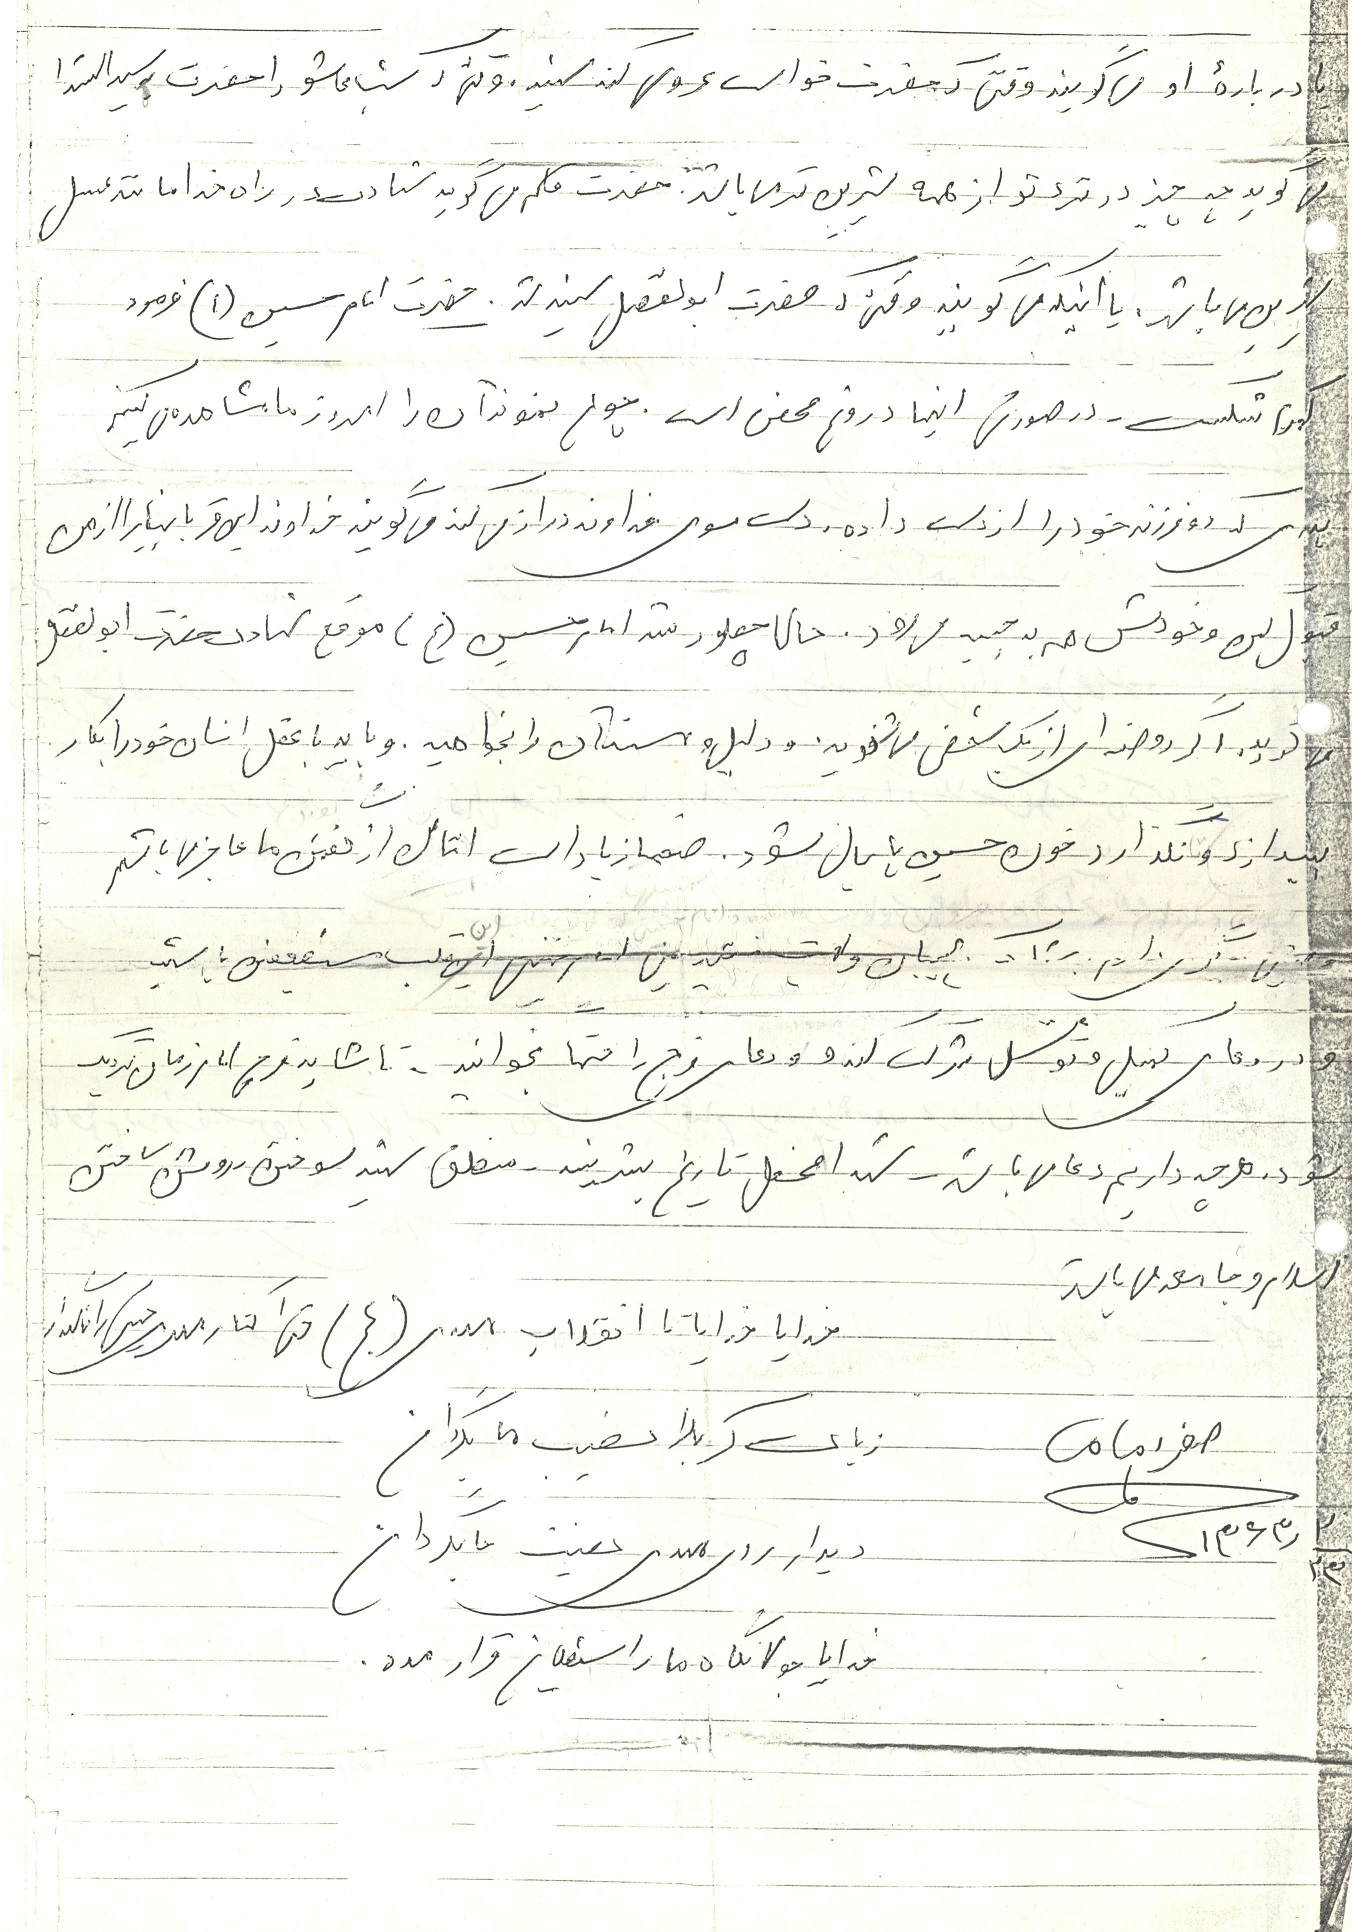 یا درباره‌ٔ او می گویند وقتی که حضرت خواست عروسی کند شهید. وقتی که شب عاشورا حضرت سیدالشهدا
می گوید چه چیز در نزد تو از همه شیرین تر می باشد. حضرت قاسم می گوید شهادت در راه خدا مانند عسل
شیرین می باشد. یا اینکه می گویند وقتی که حضرت ابوالفضل شهید شد. حضرت امام حسین (ا) فرمود
کمرم شکست - در صورتی اینها دروغ محض است. چون نمونه آن را امروز ما مشاهده می کنیم
پدری که دو فرزند خود را از دست داده، دست سوی خداوند دراز می کند می گویند خداوند این قربانیها را از من
قبول کن و خودش هم به جبهه می رود. حالا چطور شد امام حسین (ع) موقع شهادت حضرت ابوالفضل
می گوید. اگر روضه ای از یک شخص می شنوید. دلیل و سند آن را بخواهید. و باید با عقل انسان خود را بکار
بیندازد و نگذارد خون حسین پایمال شود. ضمنا زیاد است امثال از گفتن ما عاجز می باشیم
و در دعای کمیل و توسل شرکت کنید و دعای فرج را حتما بخوانید - تا شاید فرج امام زمان نزدیک
شود. هرچه داریم دعا می باشد - شهدا محفل تاریخ بشریتند - منطق شهید سوختن روشن ساختن
اسلام و جامعه می باشد
خدایا خدایا تا انقلاب مهدی (عج) حتی کنار مهدی خمینی را نگهدار
زیارت کربلا نصیب ما بگردان
صفر مامی
دیدار روی مهدی نصیب ما بگردان
۱۳۶۳
خدایا جولانگاه ما را قرار مده.